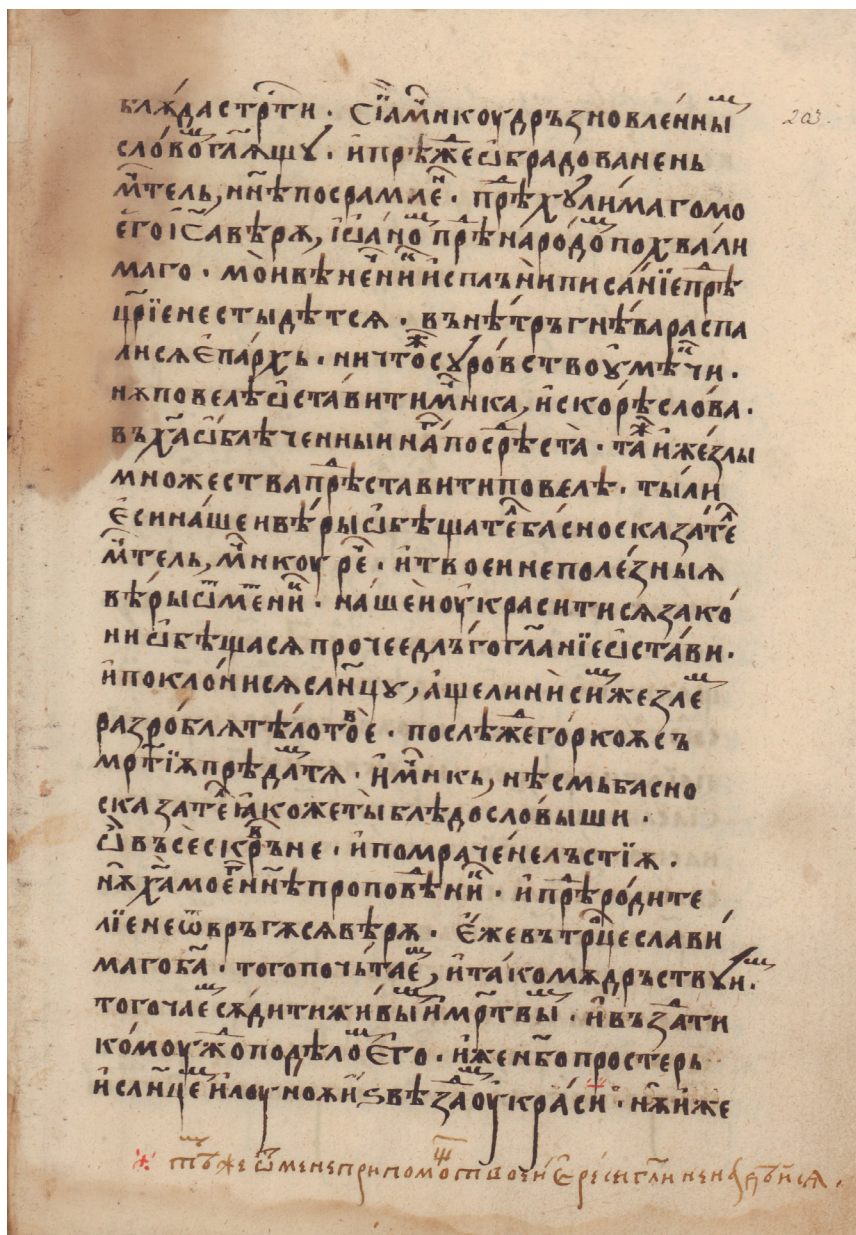 блѧ́дастрⷭ҇ти · Сїѧ мⷱ҇никоу дръзновле́нныⷨ
сло́вомⷨ гл҃ѧщꙋ · и҆ прѣжⷣе ѡ҆брадованень
мⷱ҇тель, нн҃ѣ посрамлеⷩ҇ · прѣⷣ хꙋли́маго мо
его і҆с҃а вѣрѫ, і҆ѡа́ноⷨ прѣⷣ наро́доⷨ похвали
маго · мо́и вѣнеⷱ҇нїи и҆сплъни писа́нїе прѣⷣ
цр҃їе не стыдѣтсѧ · вънѣтръ гнѣва распа
лисѧ є҆па́рхь · ничтоⷤ сꙋро́вство ꙋ҆мѣⷱ҇чи ·
нѫ повелѣ ѡ҆ста́вити мⷱ҇ника, и҆ скорѣ сло́ва ·
въ хⷭ҇а ѡ҆блѣченныи наⷨ посрѣⷣ ста̀ · таⷤ и҆же злы
множества прѣⷣставити повелѣ · ты́ ли
є҆си на́шеи вѣ́ры ѡ҆бѣщатеⷧ҇ ба́сносказа́теⷧ҇
мⷱ҇тель, мⷱ҇никоу реⷱ҇ · и҆ твоеи неполе́зныѧ
вѣ́ры ѿмеⷩ҇нїи · на́шеѝ оу҆краситисѧ зако́
ни ѡ҆бѣщасѧ прочее длъ́го гл҃анїе ѡ҆ста́ви ·
и҆ покло́нисѧ слн҃цꙋ, а҆ще ли нѝ сиⷨже злеⷨ
раздро́блѧ тѣ́ло твое · послѣжⷣе го́ркоѫ съ
мрⷮ҇їѫ прѣдаⷨтѧ · и҆ мⷱ҇никь, нѣсмь басно
сказатеⷧ҇ ꙗ҆коже ты̀ блѣдосло́выши ·
ѽ въсе скврⷩ҇не · и҆ помраче́не лъстїѫ ·
нѫ хⷭ҇а моеⷢ҇ нн҃ѣ проповѣⷣникь · и҆ прѣⷣ роди́те
лїе не ѿвръгѫсѧ вѣрѫ · є҆́же въ трⷪ҇це слави́
маго ба҃ · того почьтаеⷨ, и҆ та́ко мѫдръствꙋѧⷨ ·
того чаеⷨ сѫ́дити жи́выⷨ и҆ мрⷮ҇твыⷨ · и҆ въздаⷣти
ко́моуждⷣо по дѣлоⷨ є҆го · и҆же нб҃о простерь
и҆ слн҃цеⷨ и҆ лоуноѫ и҆ ѕвѣздаⷨ оу҆кра́си · нѫ и҆же